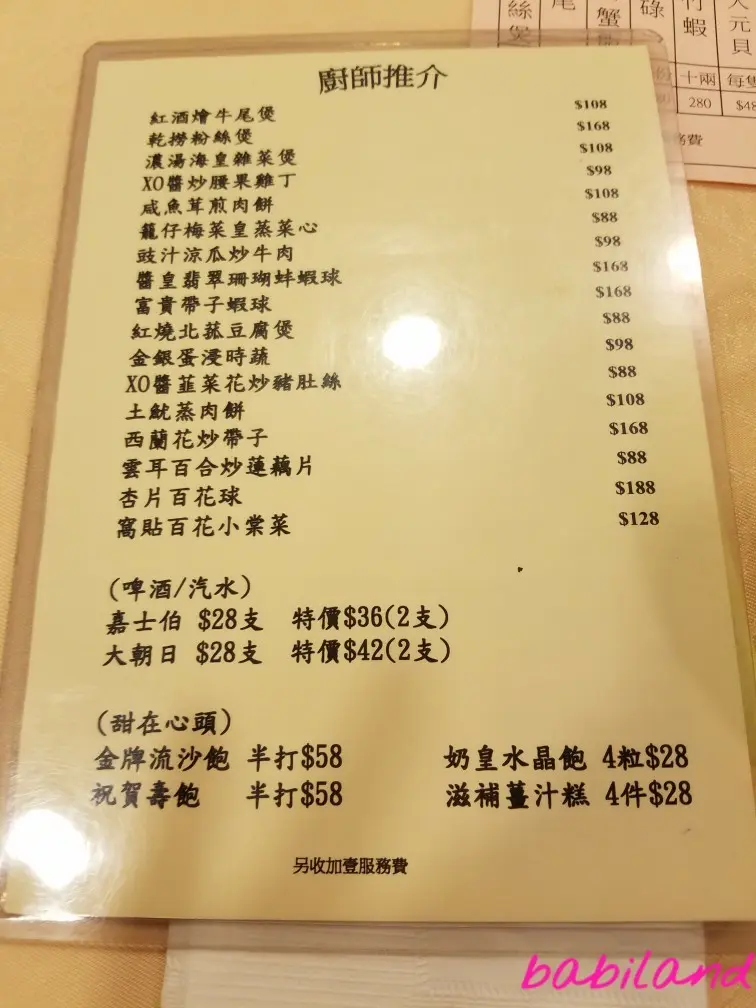 廚師推介
紅酒燴牛尾煲 $108
乾撈粉絲煲 $168
濃湯海皇雜菜煲 $108
XO醬炒腰果雞丁 $98
咸魚茸煎肉餅 $108
籠仔梅菜皇蒸菜心 $88
豉汁涼瓜炒牛肉 $98
醬皇翡翠珊瑚蚌蝦球 $168
富貴帶子蝦球 $168
紅燒北菰豆腐煲 $88
金銀蛋浸時蔬 $98
XO醬韮菜花炒豬肚絲 $88
土魷蒸肉餅 $108
西蘭花炒帶子 $168
雲耳百合炒蓮藕片 $88
杏片百花球 $188
窩貼百花小棠菜 $128
(啤酒/汽水)
嘉士伯 $28支 特價$36(2支)
大朝日 $28支 特價$42(2支)
(甜在心頭)
金牌流沙飽 半打$58 奶皇水晶飽 4粒$28
祝賀壽飽 半打$58 滋補薑汁糕 4件$28
另收加壹服務費
絲煲
尾
蟹
碌
竹蝦
元貝
十兩 每隻
280 $48
務費
babiland